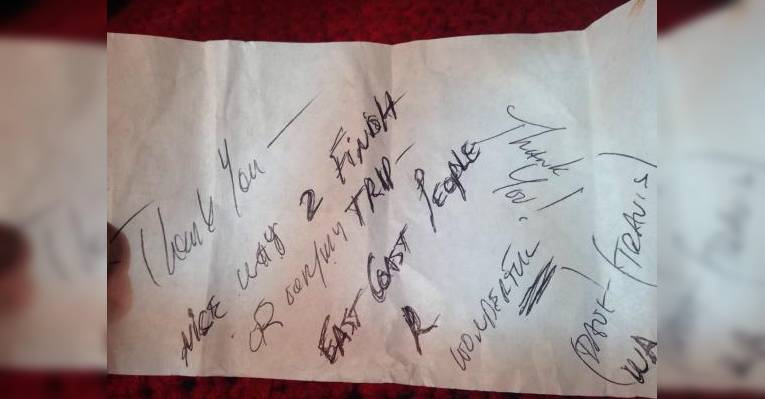 Thank You —
NICE WAY 2 FINISH
OR COUNTRY TRIP —
EAST COAST PEOPLE
R WONDERFUL
THANK
YOU!
(DAVE - (TRAVIS)
(WA